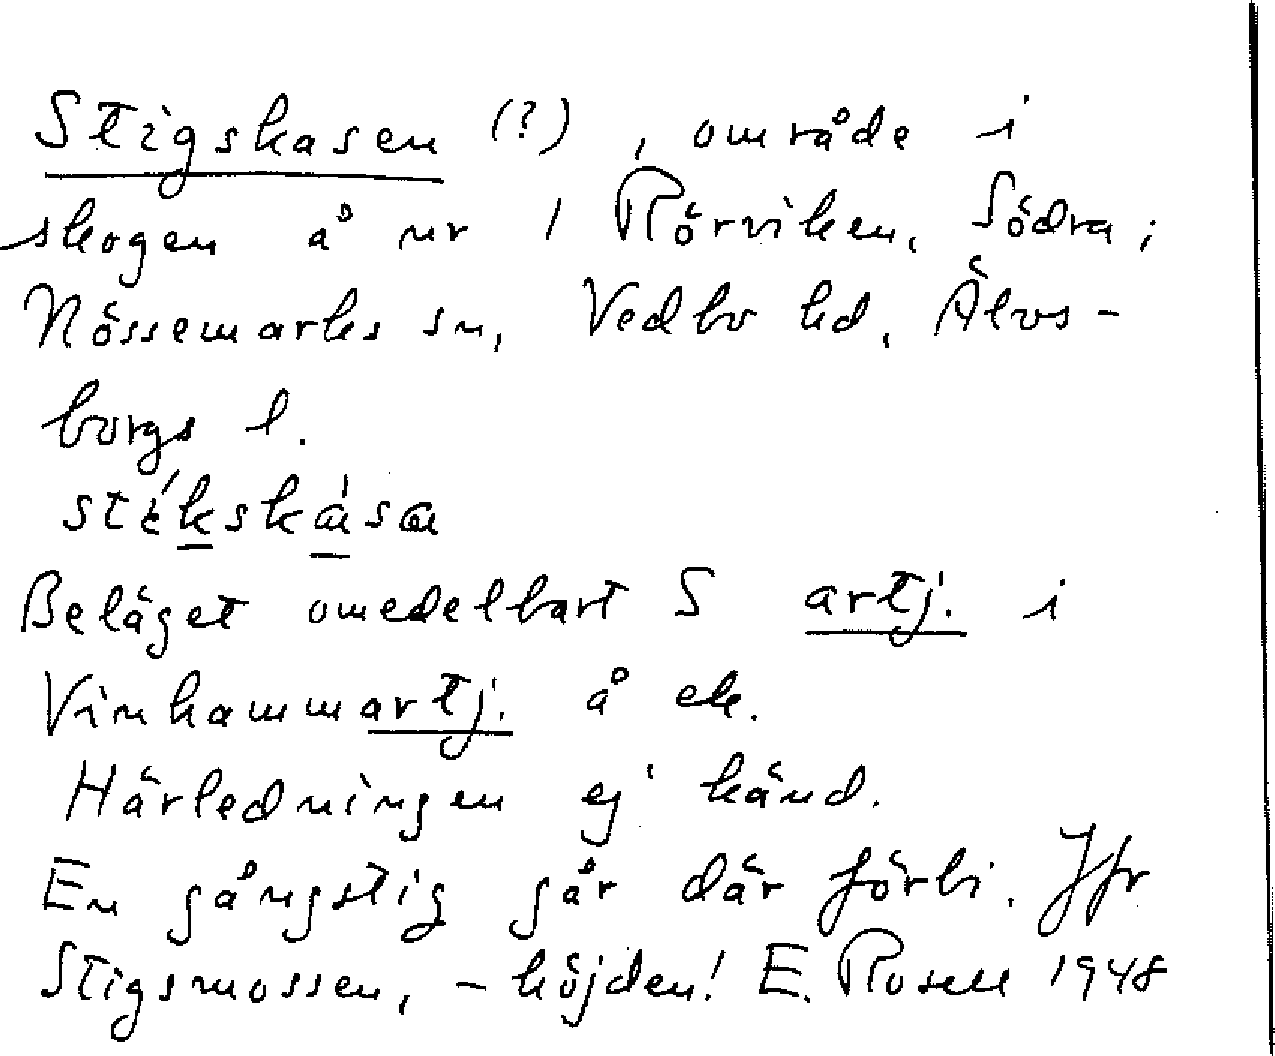 Stigskasen (?), område i
skogen å nr 1 Rörviken, Södra;
Nössemarks sn, Vedbo hd, Älvs-
borgs l.
stékskàsa
Beläget omedelbart S artj. i
Vinkammartj. å ek.
Härledningen ej känd.
En gångstig går där förbi. Jfr
Stigsmossen, - höjden! E. Rosell 1948